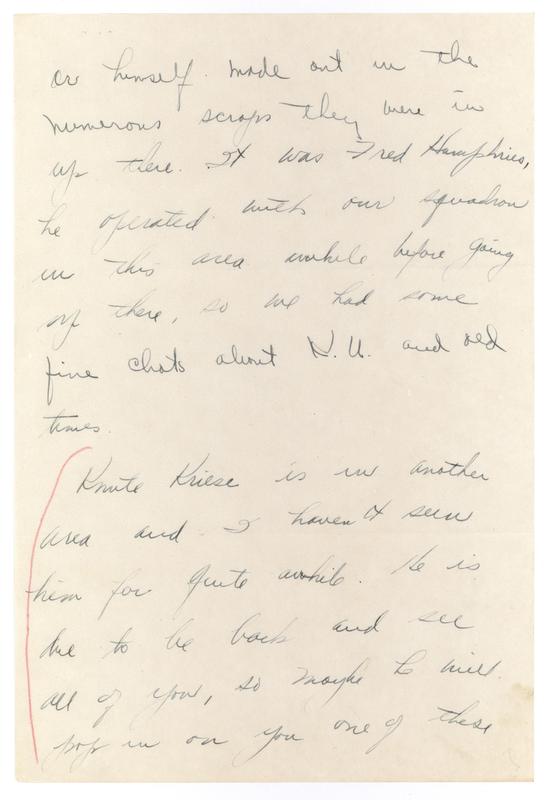 or himself made out in the
numerous scraps they were in
up there. It was Fred Humphries,
he operated with our squadron
in this area awhile before going
up there, so we had some
fine chats about N.U. and old
times.
Knute Kriese is in another
area and I haven't seen
him for quite awhile. He is
due to be back and see
all of you, so maybe he will
pop in on you one of these